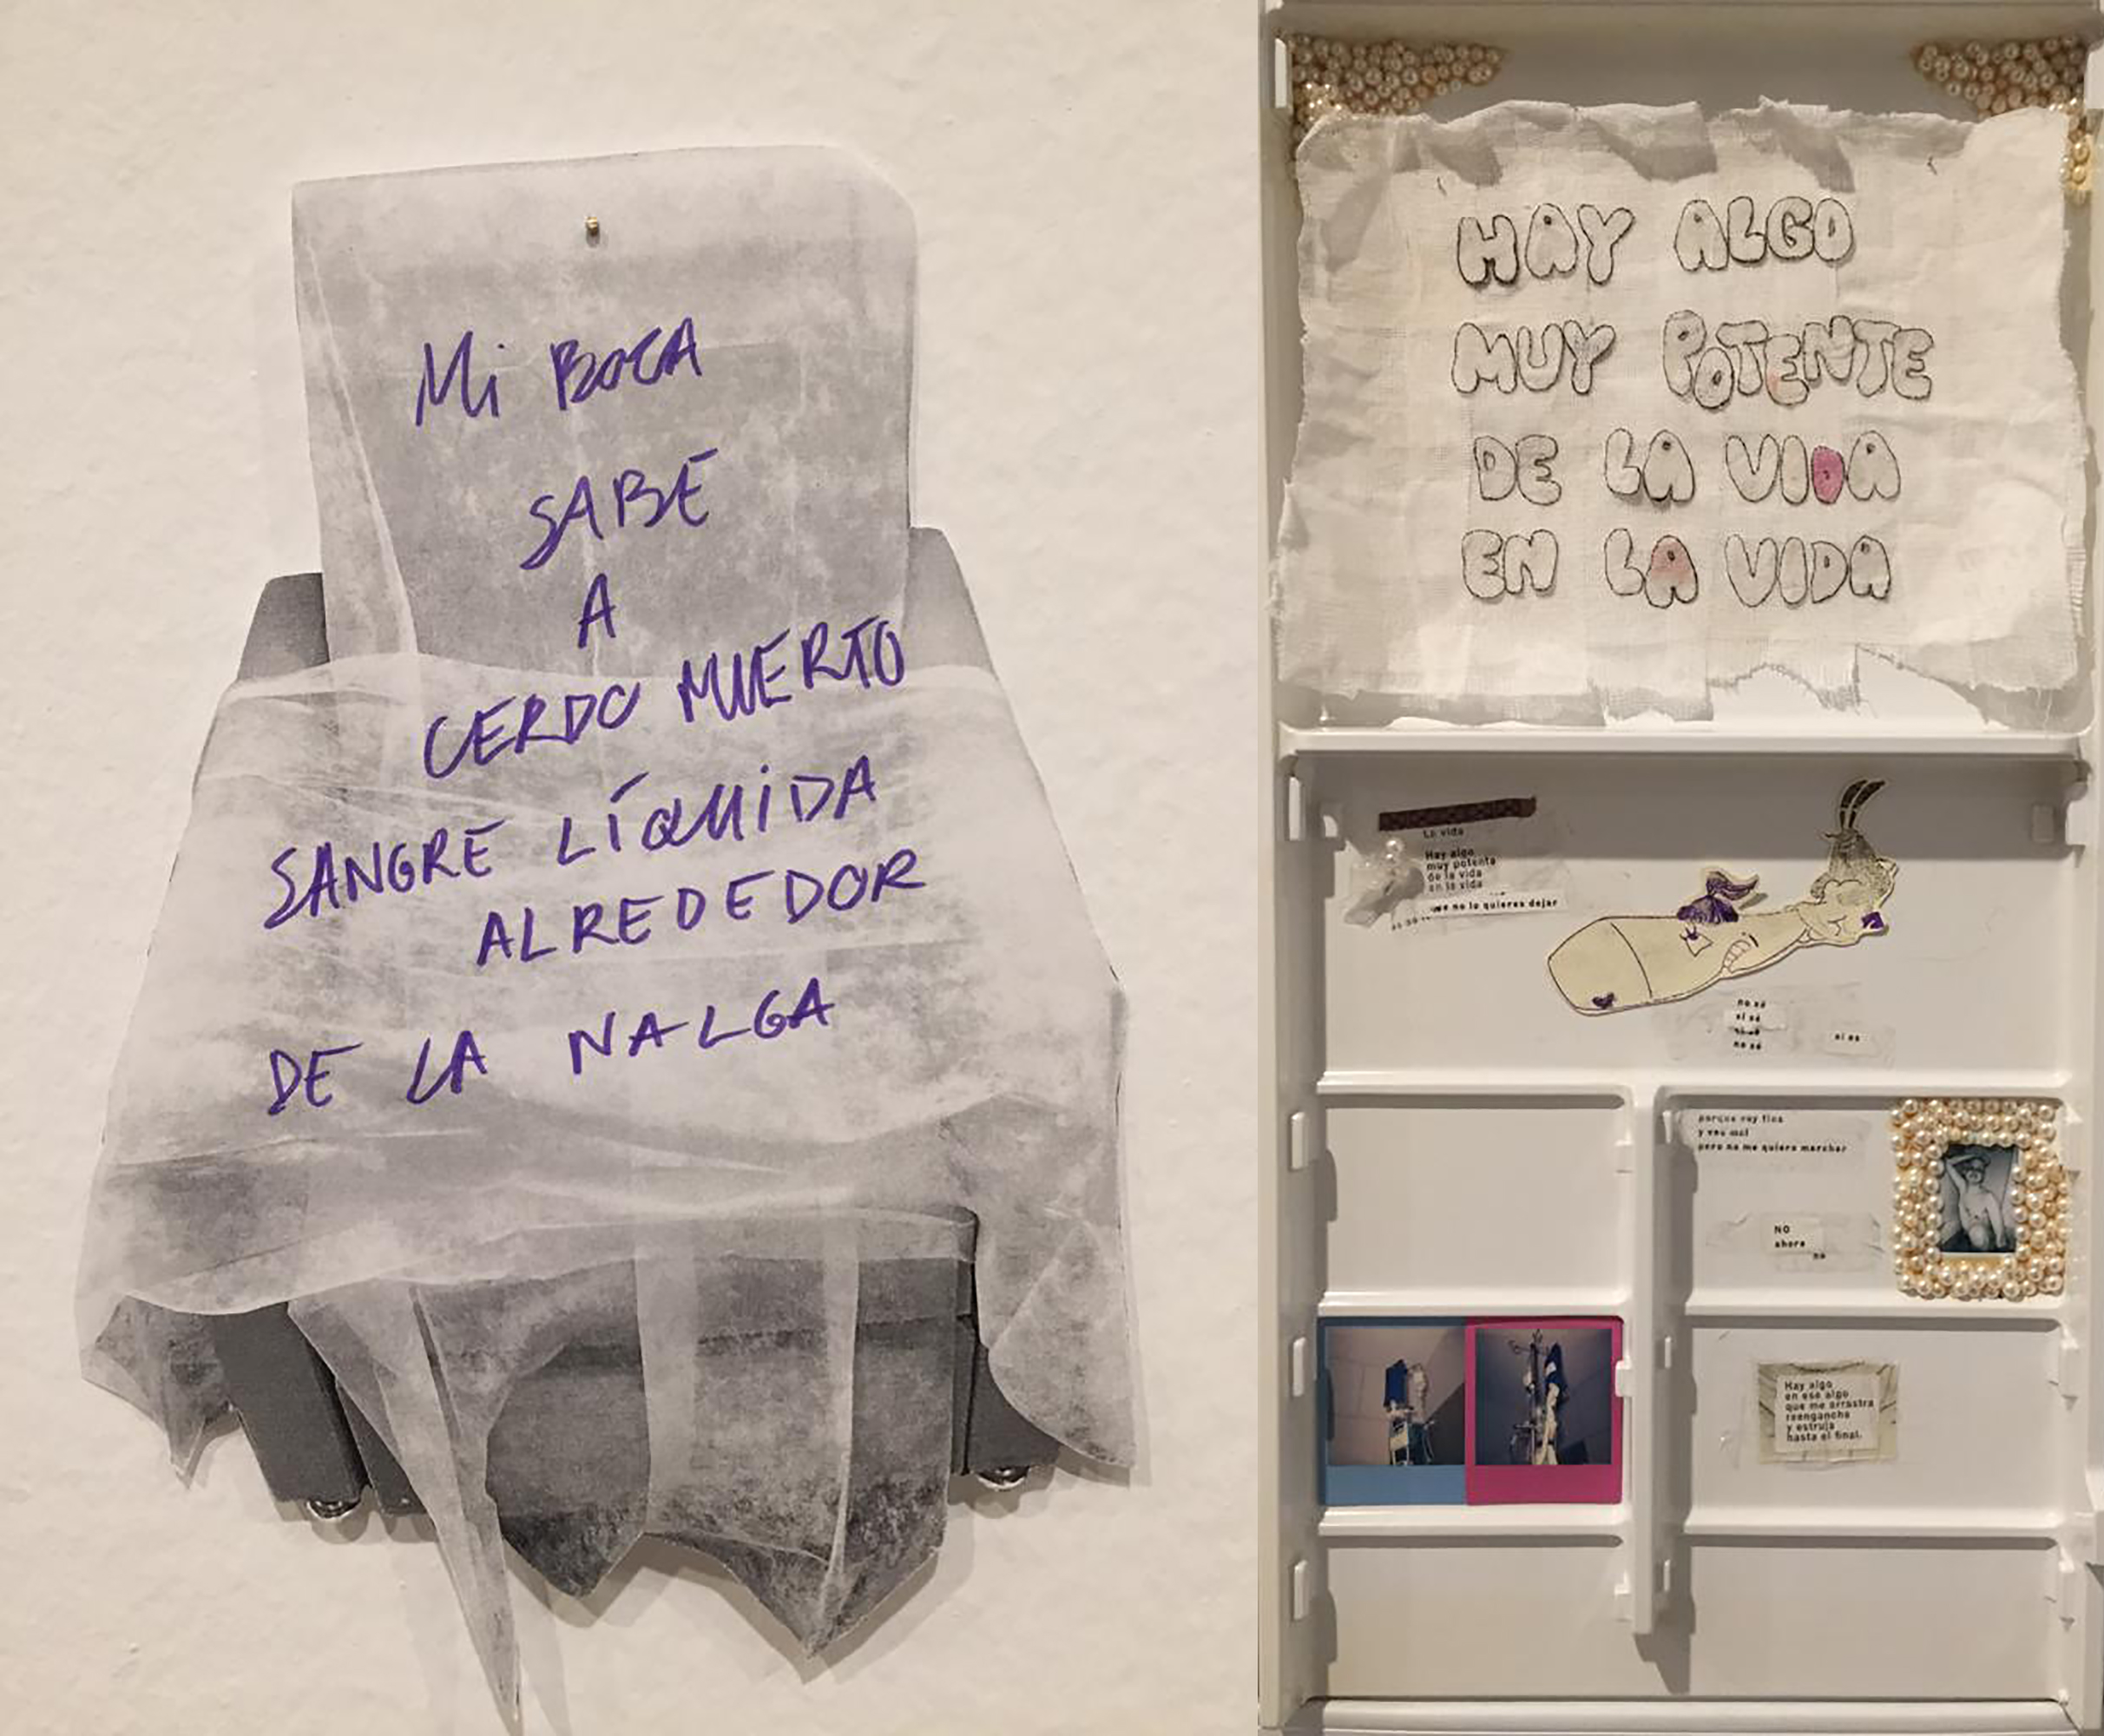 Mi BOCA
SABE
A
CERDO MUERTO
SANGRE LÍQUIDA
ALREDEDOR
DE LA NALGA
HAY ALGO
MUY POTENTE
DE LA VIDA
EN LA VIDA
La vida
Hay algo
muy potente
de la vida
en la vida
que no lo quieres dejar
no sé
sí sé
sí sé
no sé
sí es
porque voy fina
y veo mal
pero no me quiero marchar
NO
ahora
no
Hay algo
en ese algo
que me arrastra
reengancha
y estruja
hasta el final.